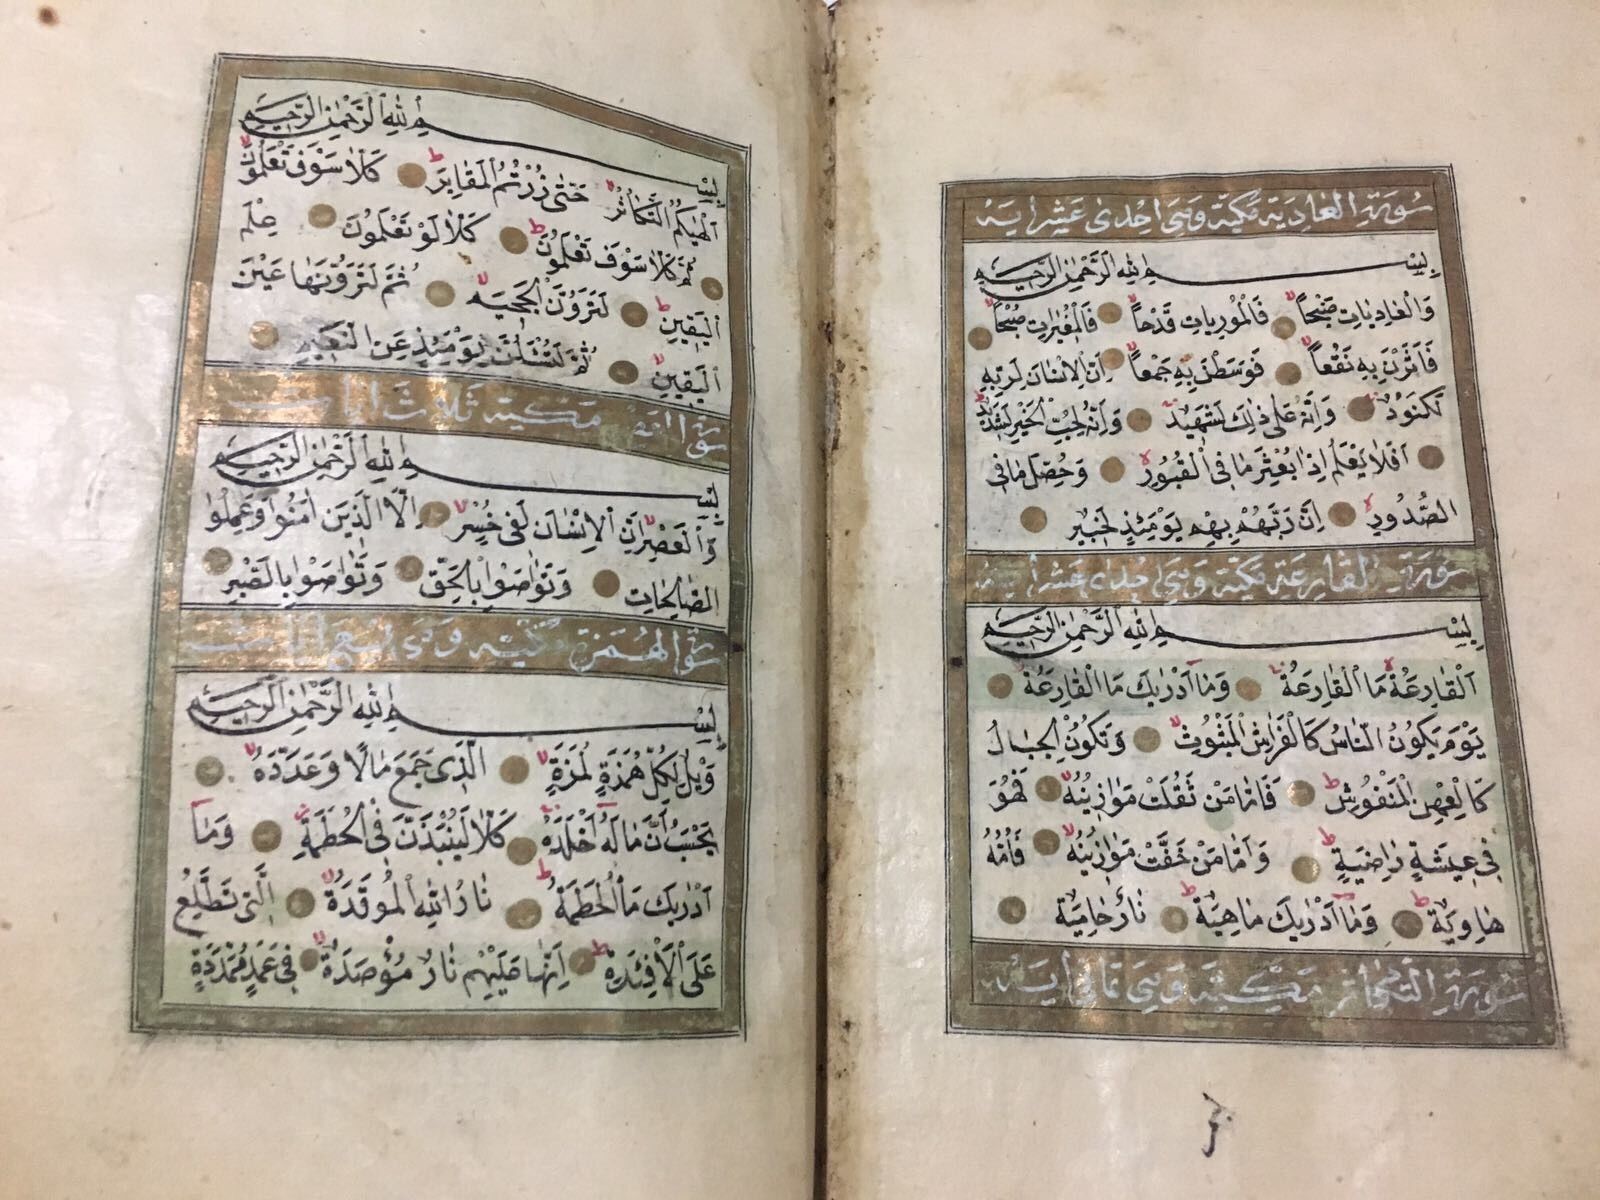 سورة العاديه مكية وهي احدى عشر ايه
بِسْمِ اللهِ الرَّحْمٰنِ الرَّحِيمِ
وَالْعَادِيَاتِ ضَبْحًا فَالْمُورِيَاتِ قَدْحًا فَالْمُغِيرَاتِ صُبْحًا
فَأَثَرْنَ بِهِ نَقْعًا فَوَسَطْنَ بِهِ جَمْعًا اِنَّ الْاِنْسَانَ لِرَبِّهِ
لَكَنُودٌ وَاِنَّهُ عَلٰى ذٰلِكَ لَشَهِيدٌ وَاِنَّهُ لِحُبِّ الْخَيْرِ لَشَدِيدٌ
اَفَلَا يَعْلَمُ اِذَا بُعْثِرَ مَا فِى الْقُبُورِ وَحُصِّلَ مَا فِى
الصُّدُورِ اِنَّ رَبَّهُمْ بِهِمْ يَوْمَئِذٍ لَخَبِيرٌ
سورة القارعة مكية وهي احدى عشر ايه
بِسْمِ اللهِ الرَّحْمٰنِ الرَّحِيمِ
اَلْقَارِعَةُ مَا الْقَارِعَةُ وَمَا اَدْرٰيكَ مَا الْقَارِعَةُ
يَوْمَ يَكُونُ النَّاسُ كَالْفَرَاشِ الْمَبْثُوثِ وَتَكُونُ الْجِبَالُ
كَالْعِهْنِ الْمَنْفُوشِ فَاَمَّا مَنْ ثَقُلَتْ مَوَازِينُهُ فَهُوَ
فِى عِيشَةٍ رَاضِيَةٍ وَاَمَّا مَنْ خَفَّتْ مَوَازِينُهُ فَاُمُّهُ
هَاوِيَةٌ وَمَا اَدْرٰيكَ مَاهِيَهْ نَارٌ حَامِيَةٌ
سورة التكاثر مكية وهي ثماني ايه
بِسْمِ اللهِ الرَّحْمٰنِ الرَّحِيمِ
اَلْهٰيكُمُ التَّكَاثُرُ حَتّٰى زُرْتُمُ الْمَقَابِرَ كَلَّا سَوْفَ تَعْلَمُونَ
ثُمَّ كَلَّا سَوْفَ تَعْلَمُونَ كَلَّا لَوْ تَعْلَمُونَ عِلْمَ
الْيَقِينِ لَتَرَوُنَّ الْجَحِيمَ ثُمَّ لَتَرَوُنَّهَا عَيْنَ
الْيَقِينِ ثُمَّ لَتُسْئَلُنَّ يَوْمَئِذٍ عَنِ النَّعِيمِ
سورة مكية ثلاث ايات
بِسْمِ اللهِ الرَّحْمٰنِ الرَّحِيمِ
وَالْعَصْرِ اِنَّ الْاِنْسَانَ لَفِى خُسْرٍ اِلَّا الَّذِينَ اٰمَنُوا وَعَمِلُوا
الصَّالِحَاتِ وَتَوَاصَوْا بِالْحَقِّ وَتَوَاصَوْا بِالصَّبْرِ
سورة الهمزة مكية وهي
بِسْمِ اللهِ الرَّحْمٰنِ الرَّحِيمِ
وَيْلٌ لِكُلِّ هُمَزَةٍ لُمَزَةٍ الَّذِى جَمَعَ مَالًا وَعَدَّدَهُ
يَحْسَبُ اَنَّ مَالَهُ اَخْلَدَهُ كَلَّا لَيُنْبَذَنَّ فِى الْحُطَمَةِ وَمَا
اَدْرٰيكَ مَا الْحُطَمَةُ نَارُ اللهِ الْمُوقَدَةُ اَلَّتِى تَطَّلِعُ
عَلَى الْاَفْئِدَةِ اِنَّهَا عَلَيْهِمْ نَارٌ مُؤْصَدَةٌ فِى عَمَدٍ مُمَدَّدَةٍ